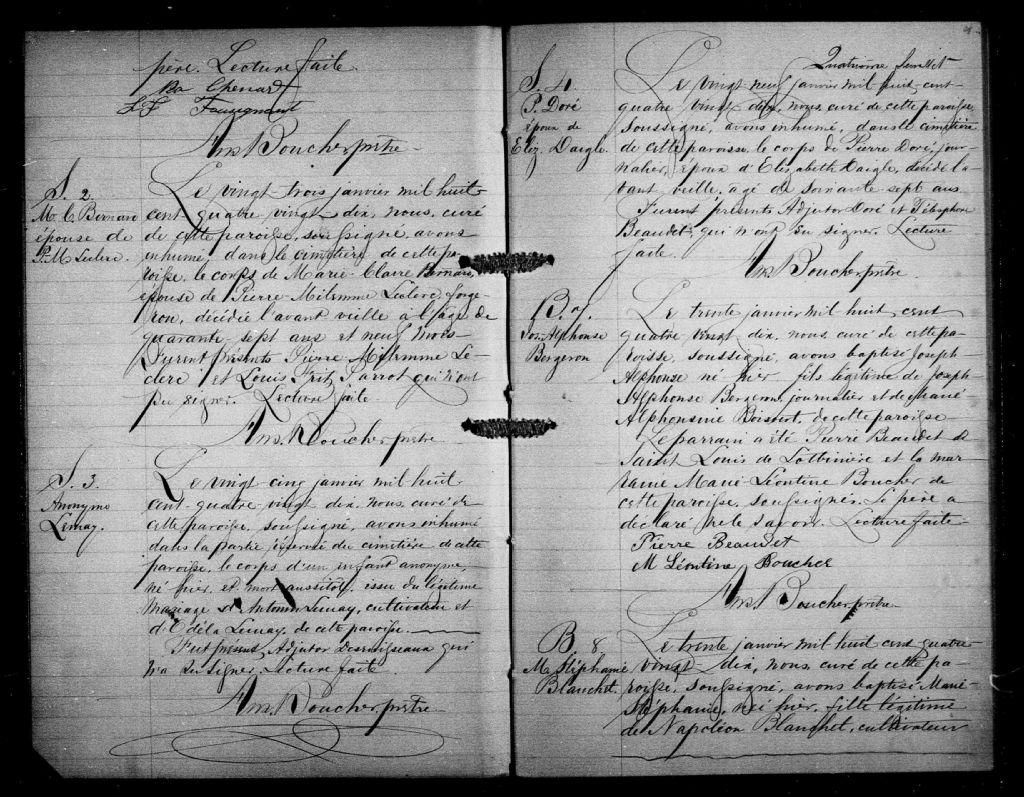 père. Lecture faite.
Ls Chenard
L F Fauvgnant
Ams. Boucher ptre
S. 2.
M. C. Bernard
épouse de
P. M. Leclerc.
Le vingt-trois janvier mil huit
cent quatre vingt dix, nous, curé
de cette paroisse, soussigné, avons
inhumé, dans le cimetière de cette pa-
roisse, le corps de Marie-Claire Bernard,
épouse de Pierre-Milemme Leclerc forge-
ron, décédée l'avant vielle à l'âge de
quarante-sept ans et neuf mois.
Furent présents Pierre Milemme Le-
clerc et Louis Parrot qui n'ont
pu signer. Lecture faite.
Ams. Boucher ptre
S. 3.
Anonyme
Lemay.
Le vingt cinq janvier mil huit
cent quatre-vingt dix, nous, curé de
cette paroisse, soussigné, avons inhumé
dans la partie réservée du cimetière de cette
paroisse, le corps d'un enfant anonyme,
né hier, et mort aussitôt, issu du légitime
mariage d'Antoine Lemay, cultivateur et
d'Odéla Lemay, de cette paroisse.
Fut présent, Adjutor Desruisseaux qui
n'a su signer. Lecture faite
Ams. Boucher ptre
Quatrième feuillet
S. 4
P. Doré
époux de
Eliz. Daigle
Le vingt-neuf janvier mil huit cent
quatre vingt dix, nous, curé de cette paroisse
soussigné, avons inhumé, dans le cimetière
de cette paroisse, le corps de Pierre Doré, jour-
nalier, époux d'Elisabeth Daigle, décédé l'a-
vant vieille, agé de soixante sept ans
Furent présents Adjutor Doré et Télesphore
Beaudet, qui n'ont su signer. Lecture
faite.
Ams. Boucher ptre
B. 7.
Jos. Alphonse
Bergeron
Le trente janvier mil huit cent
quatre vingt dix, nous, curé de cette pa-
roisse, soussigné, avons baptisé Joseph
Alphonse né hier fils légitime de Joseph
Alphonse Bergeron, journalier et de Marie
Alphonsine Boisvert, de cette paroisse
Le parrain a été Pierre Beaudet de
Saint Louis de Lotbinière et la mar-
raine Marie Léontine Boucher de
cette paroisse, soussignés. Le père a
déclaré ne le savoir. Lecture faite
Pierre Beaudet
M Léontine Boucher
Ams. Boucher ptre
B. 8
M. Stéphanie
Blanchet.
Le trente janvier mil huit cent quatre
vingt-dix, nous, curé de cette pa-
roisse, soussigné, avons baptisé Marie
Stéphanie, née hier, fille légitime
de Napoléon Blanchet, cultivateur